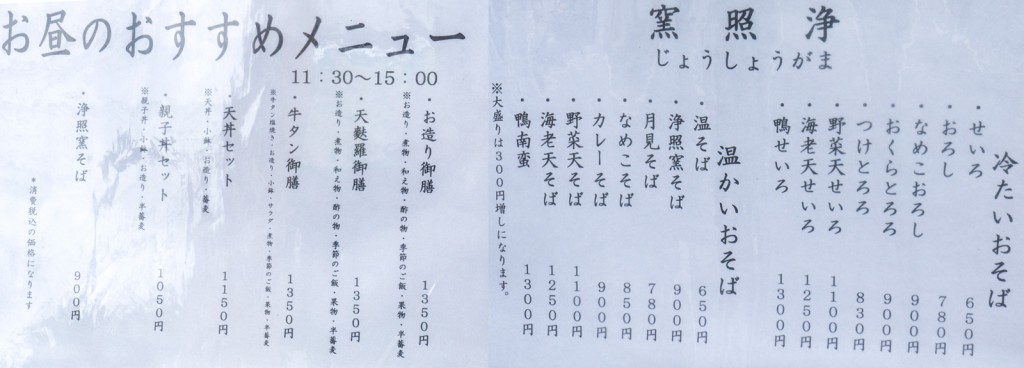 お昼のおすすめメニュー
11：30～15：00
・お造り御膳 1350円
※お造り・煮物・和え物・酢の物・季節のご飯・果物・半蕎麦
・天麩羅御膳 1350円
※お造り・煮物・和え物・酢の物・季節のご飯・果物・半蕎麦
・牛タン御膳 1350円
※牛タン塩焼き・お造り・小鉢・サラダ・煮物・季節のご飯・果物・半蕎麦
・天丼セット 1150円
※天丼・小鉢・お造り・半蕎麦
・親子丼セット 1050円
※親子丼・小鉢・お造り・半蕎麦
・浄照窯そば 900円
＊消費税込の価格になります
窯照浄
じょうしょうがま
冷たいおそば
・せいろ 650円
・おろし 780円
・なめこおろし 900円
・おくらとろろ 900円
・つけとろろ 830円
・野菜天せいろ 1100円
・海老天せいろ 1250円
・鴨せいろ 1300円
温かいおそば
・温そば 650円
・浄照窯そば 900円
・月見そば 780円
・なめこそば 850円
・カレーそば 900円
・野菜天そば 1100円
・海老天そば 1250円
・鴨南蛮 1300円
※大盛りは300円増しになります。